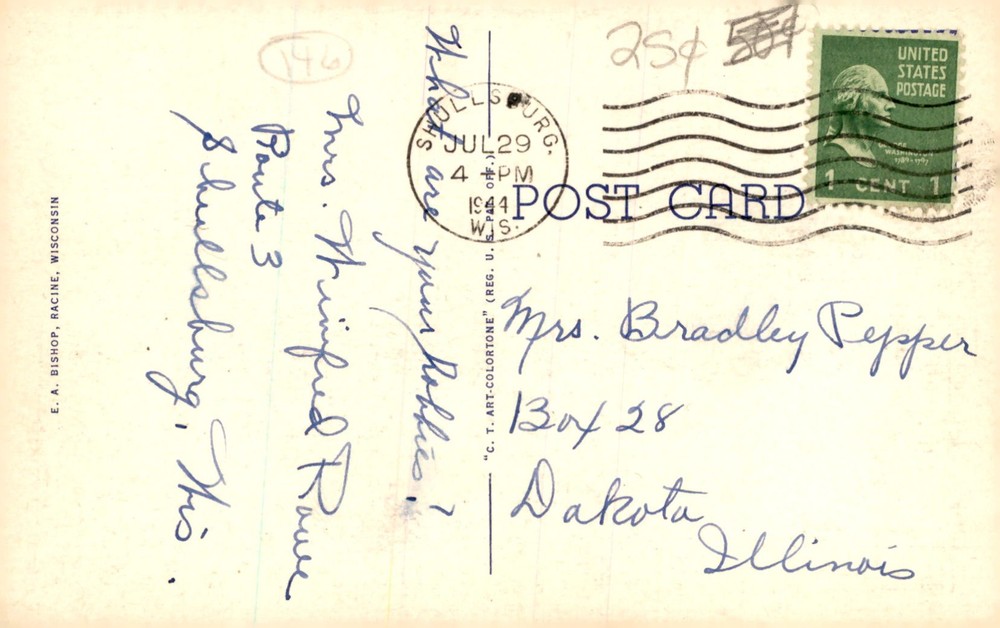 What are your hobbies?
Mrs. Winifred Rowe
Route 3
Shullsburg, Wis.
146
25¢ 50¢
SHULLSBURG.
JUL 29
4 - PM
1944
WIS.
UNITED
STATES
POSTAGE
1 CENT 1
POST CARD
Mrs. Bradley Pepper
Box 28
Dakota
Illinois
E. A. BISHOP, RACINE, WISCONSIN
"C. T. ART-COLORTONE" (REG. U. S. PAT. OFF.)